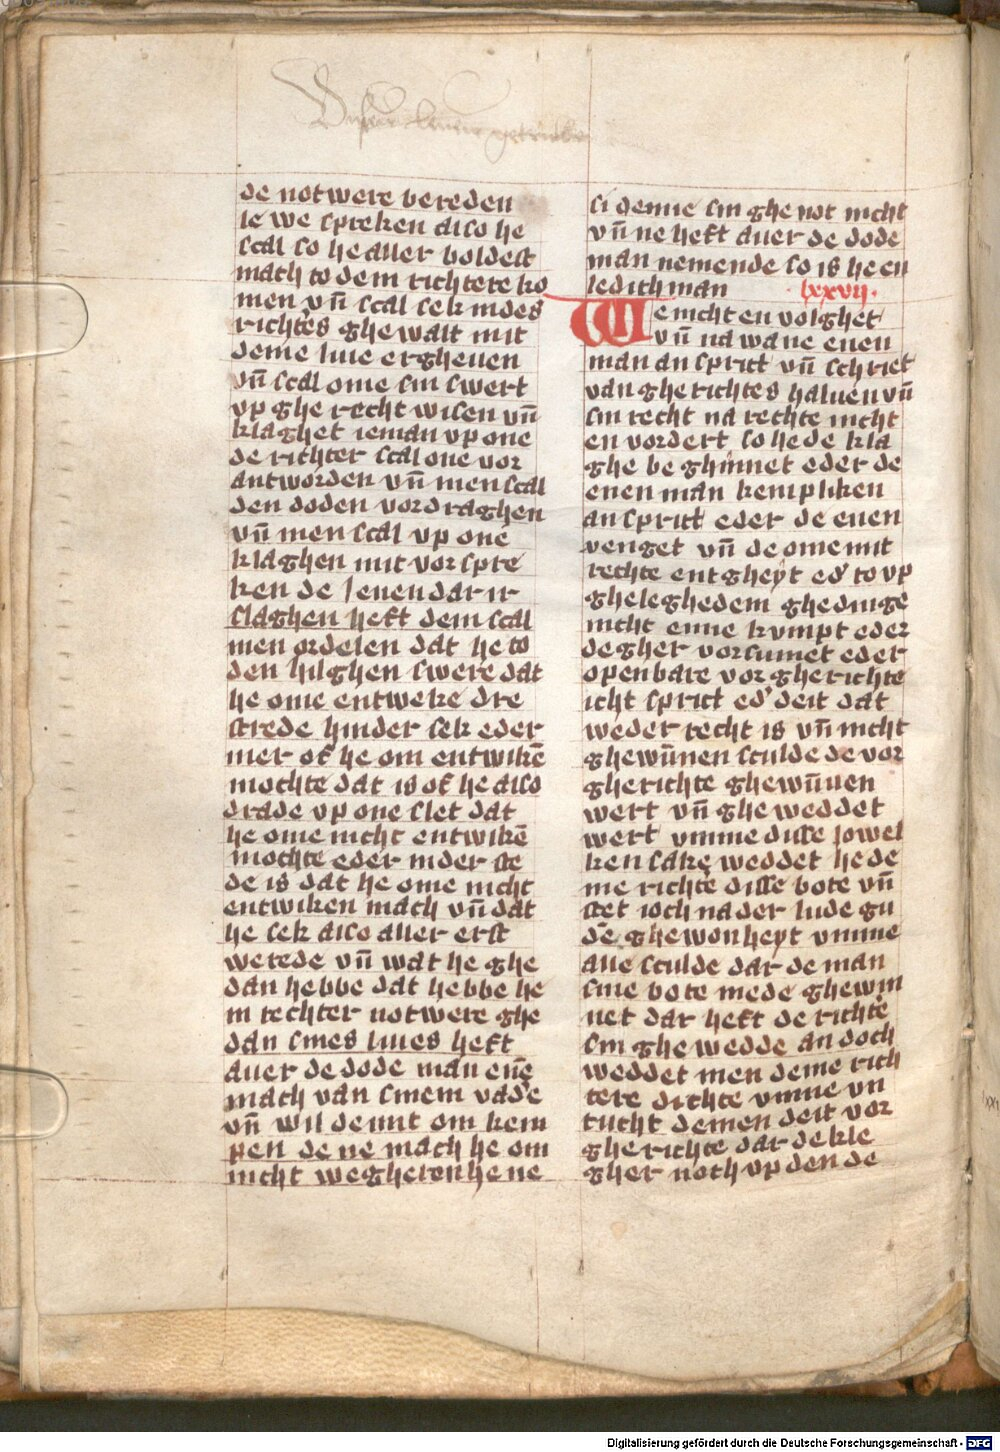 de notwere bereden
le we spreken also he
scal so he aller boldest
mach to dem richtere ko
men vn̄ scal sek indes
richtes ghewalt mit
deme liue ergheuen
vn̄ scal ome sin swert
vp ghe recht wisen vn̄
klaghet ieman vp one
de richter scal one vor
antworden vn̄ men scal
den doden vordraghen
vn̄ men scal vp one
klaghen mit vorspre
ken de ienen dar ir
slaghen heft dem scal
men ordelen dat he to
den hilghen swere dat
he ome entweke dre
strede hinder sek eder
mer of he om entwikē
mochte dat is of he also
drade vp one slet dat
he ome nicht entwikē
mochte eder inder ste
de is dat he ome nicht
entwiken mach vn̄ dat
he sek also aller erst
werede vn̄ wat he ghe
dan hebbe dat hebbe he
in rechter notwere ghe
dan sines liues heft
auer de dode man enē
mach van sinem vade
vn̄ wil de mit om kem
pen de ne mach he om
nicht wegheren he ne
si denne sin ghenot nicht
vn̄ ne heft auer de dode
man nemende so is he en
ledich man lxxvij.
We nicht en volghet
vn̄ na wane enen
man an sprict vn̄ schriet
van gherichtes haluen vn̄
sin recht na rechte nicht
en vordert so he de kla
ghe be ghinnet eder de
enen man kempliken
an sprict eder de enen
venget vn̄ de ome mit
rechte entgheyt ed' to vp
gheleghedem ghedinge
nicht enne kumpt eder
degher vorsumet eder
openbare vor gherichte
icht sprict ed' deit dat
weder recht is vn̄ nicht
ghewūnen sculde de vor
gherichte ghewūnen
wert vn̄ ghe weddet
wert vmme disse iowel
ken sake weddet he de
me richte disse bote vn̄
stet ioch na der lude gu
de ghewonheyt vmme
alle sculde dar de man
sine bote mede ghewin
net dar heft de richte
sin ghewedde an doch
weddet men deme rich
tere dichte vmme vn
tucht de men deit vor
gherichte dar de kle
gher noch vp den de